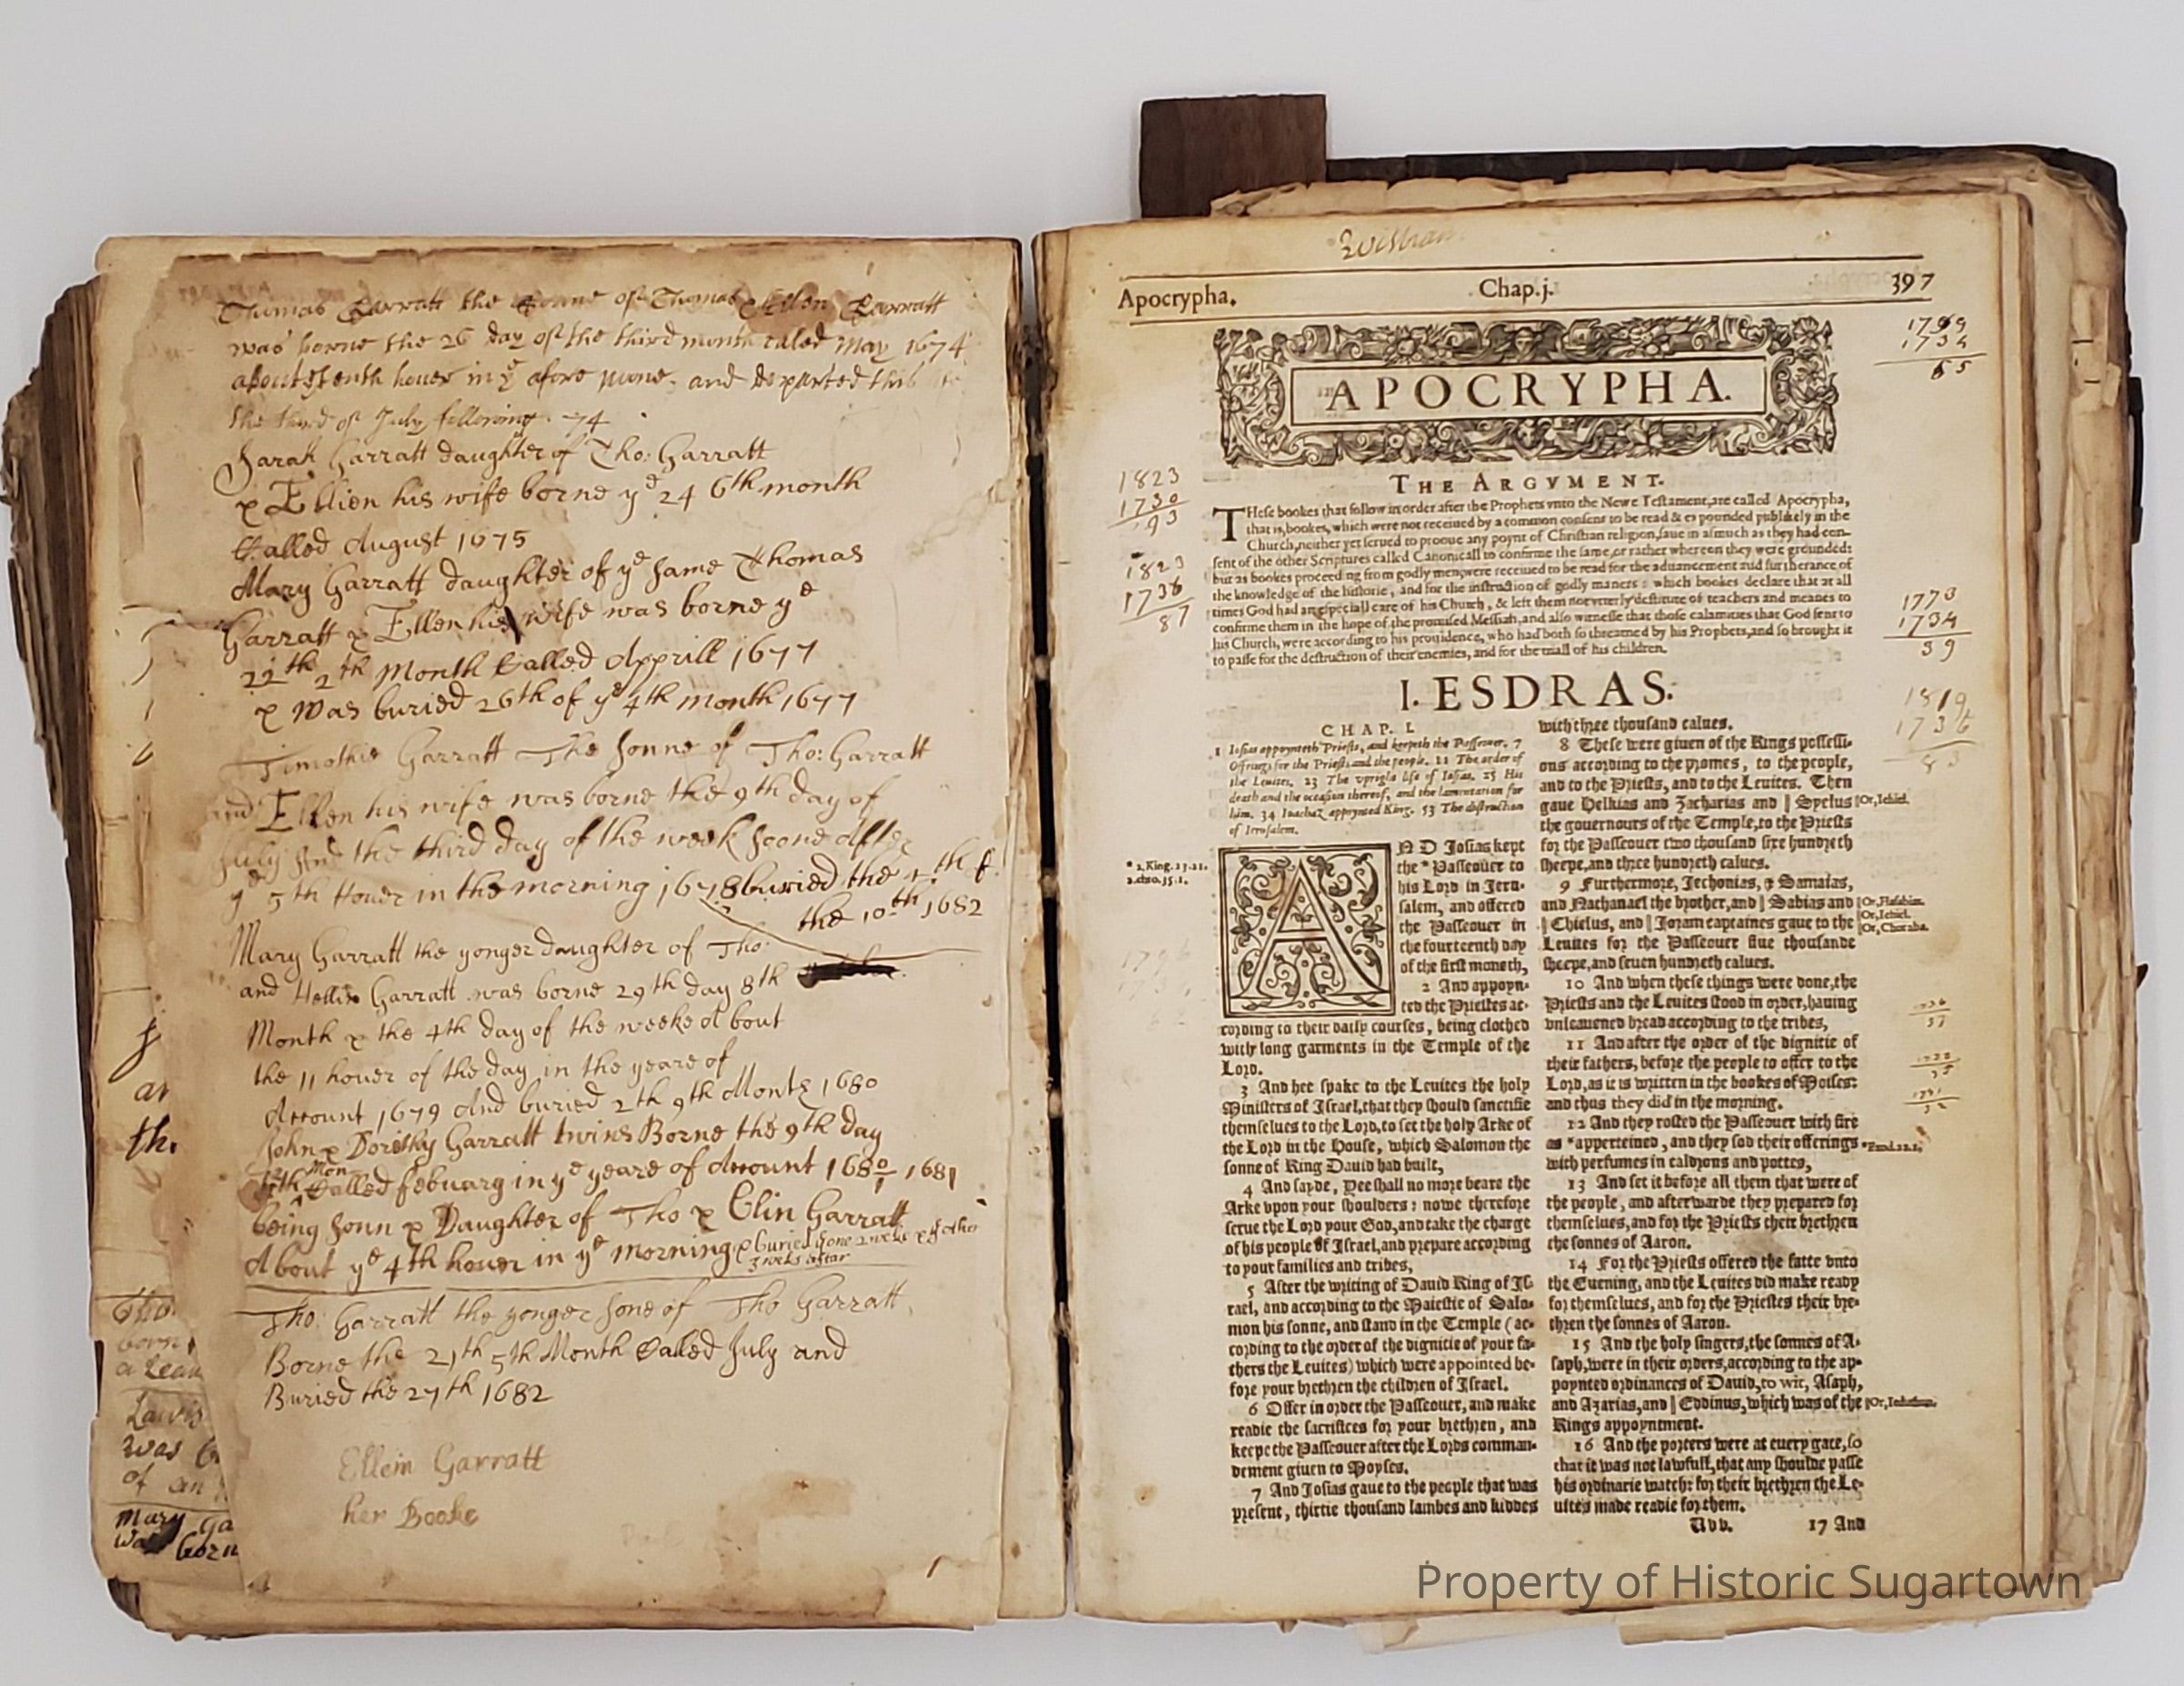 Thomas Garratt the Sonne of Thomas & Ellen Garratt
was borne the 26 day of the third month caled May 1674
about tenth houer in ye afore none, and departed this
the third of July following 74
Sarah Garratt daughter of Tho: Garratt
& Ellien his wife borne ye 24 6th month
Called August 1675
Mary Garratt daughter of ye same Thomas
Garratt & Ellen his wife was borne ye
22th 2th Month Called Apprill 1677
& was buried 26th of ye 4th month 1677
Timothie Garratt The Sonne of Tho: Garratt
and Ellen his wife was borne the 9th day of
July And the third day of the week Soone after
ye 5th Houer in the morning 1678 buried the
the 10th 1682
Mary Garratt the yonger daughter of Tho:
and Hellin Garratt was borne 29th day 8th
Month & the 4th day of the weeke About
the 11 houer of the day in the yeare of
Account 1679 And buried 2th 9th Month 1680
John & Dorithy Garratt twins Borne the 9th day
Mon
Called Febuary in ye yeare of Account 1680 1681
being Sonn & Daughter of Tho & Elin Garratt
About ye 4th houer in ye morning & buried &
3 weeks after
Tho: Garratt the yonger Sone of Tho Garratt
Borne the 21th 5th Month Called July and
Buried the 27th 1682
Ellein Garratt
her Booke
th.
born
Lewis
was
of an
Mary Ga
was born
Apocrypha.
Chap.j.
397
1734
65
APOCRYPHA.
THE ARGVMENT.
THese bookes that follow in order after the Prophets vnto the Newe Testament, are called Apocrypha,
that is, bookes, which were not receiued by a common consent to be read & expounded publikely in the
Church, neither yet serued to prooue any poynt of Christian religion, saue in asmuch as they had con-
sent of the other Scriptures called Canonicall to confirme the same, or rather whereon they were grounded:
but as bookes proceeding from godly men, were receiued to be read for the aduancement and furtherance of
the knowledge of the historie, and for the instruction of godly maners: which bookes declare that at all
times God had an especiall care of his Church, & left them not vtterly destitute of teachers and meanes to
confirme them in the hope of the promised Messiah, and also witnesse that those calamities that God sent to
his Church, were according to his prouidence, who had both so threatned by his Prophets, and so brought it
to passe for the destruction of their enemies, and for the triall of his children.
1823
1730
93
1823
1736
87
1773
1734
39
1819
1736
83
I. ESDRAS.
CHAP. I.
1 Iosias appoynteth Priests, and keepeth the Passeouer. 7
Offrings for the Priests and the people. 11 The order of
the Leuites. 23 The vpright life of Iosias. 25 His
death and the occasion thereof, and the lamentation for
him. 34 Ioachaz appoynted King. 53 The destruction
of Ierusalem.
* 2. King. 23. 21.
2. chro. 35. 1.
AND Josias kept
the * Passeouer to
his Lord in Jeru-
salem, and offered
the Passeouer in
the fourteenth day
of the first moneth,
2 And appoyn-
ted the Priestes ac-
cording to their daily courses, being clothed
with long garments in the Temple of the
Lord.
3 And hee spake to the Leuites the holy
Ministers of Israel, that they should sanctifie
themselues to the Lord, to set the holy Arke of
the Lord in the House, which Salomon the
sonne of King Dauid had built,
4 And sayde, Yee shall no more beare the
Arke vpon your shoulders: nowe therefore
serue the Lord your God, and take the charge
of his people of Israel, and prepare according
to your families and tribes,
5 After the writing of Dauid King of Is-
rael, and according to the Maiestie of Salo-
mon his sonne, and stand in the Temple (ac-
cording to the order of the dignitie of your fa-
thers the Leuites) which were appointed be-
fore your brethren the children of Israel.
6 Offer in order the Passeouer, and make
readie the sacrifices for your brethren, and
keepe the Passeouer after the Lords comman-
dement giuen to Moyses.
7 And Josias gaue to the people that was
present, thirtie thousand lambes and kiddes
with three thousand calues.
8 These were giuen of the Kings possessi-
ons according to the promes, to the people,
and to the Priests, and to the Leuites. Then
gaue Helkias and Zacharias and | Syelus
the gouernours of the Temple, to the Priests
for the Passeouer two thousand sixe hundreth
sheepe, and three hundreth calues.
9 Furthermore, Jechonias, & Samaias,
and Nathanael the brother, and | Sabias and
| Chielus, and | Joram captaines gaue to the
Leuites for the Passeouer fiue thousande
sheepe, and seuen hundreth calues.
10 And when these things were done, the
Priests and the Leuites stood in order, hauing
vnleauened bread according to the tribes,
11 And after the order of the dignitie of
their fathers, before the people to offer to the
Lord, as it is written in the bookes of Moises:
and thus they did in the morning.
12 And they rosted the Passeouer with fire
as * apperteined, and they sod their offerings
with perfumes in caldrons and pottes,
13 And set it before all them that were of
the people, and afterwarde they prepared for
themselues, and for the Priests their brethren
the sonnes of Aaron.
14 For the Priests offered the fatte vnto
the Euening, and the Leuites did make ready
for themselues, and for the Priestes their bre-
thren the sonnes of Aaron.
15 And the holy singers, the sonnes of A-
saph, were in their orders, according to the ap-
poynted ordinances of Dauid, to wit, Asaph,
and Azarias, and | Eddinus, which was of the
Kings appoyntment.
16 And the porters were at euery gate, so
that it was not lawfull, that any shoulde passe
his ordinarie watch: for their brethren the Le-
uites made readie for them.
Vvv.
17 And
|Or, Iehiel.
|Or, Hasabias.
|Or, Iehiel.
|Or, Choraba.
*Exod. 12. 1.
|Or, Ieduthun.
Property of Historic Sugartown